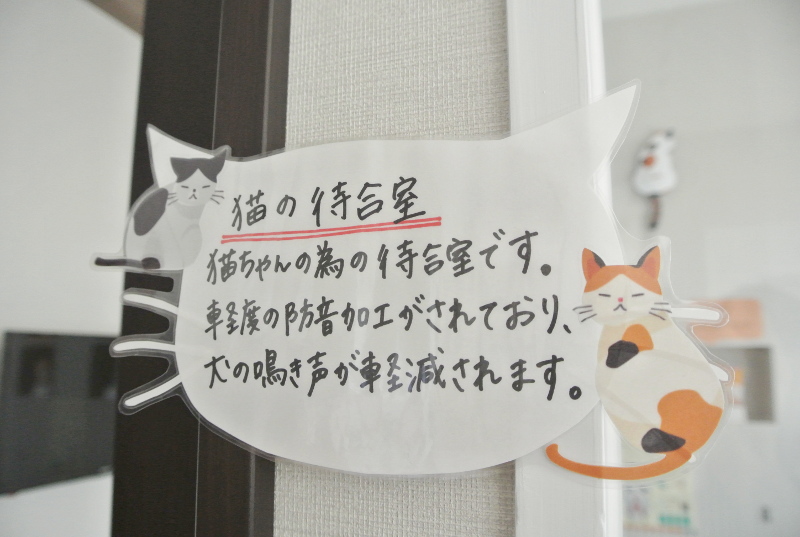 猫の待合室
猫ちゃんの為の待合室です。
軽度の防音加工がされており、
犬の鳴き声が軽減されます。